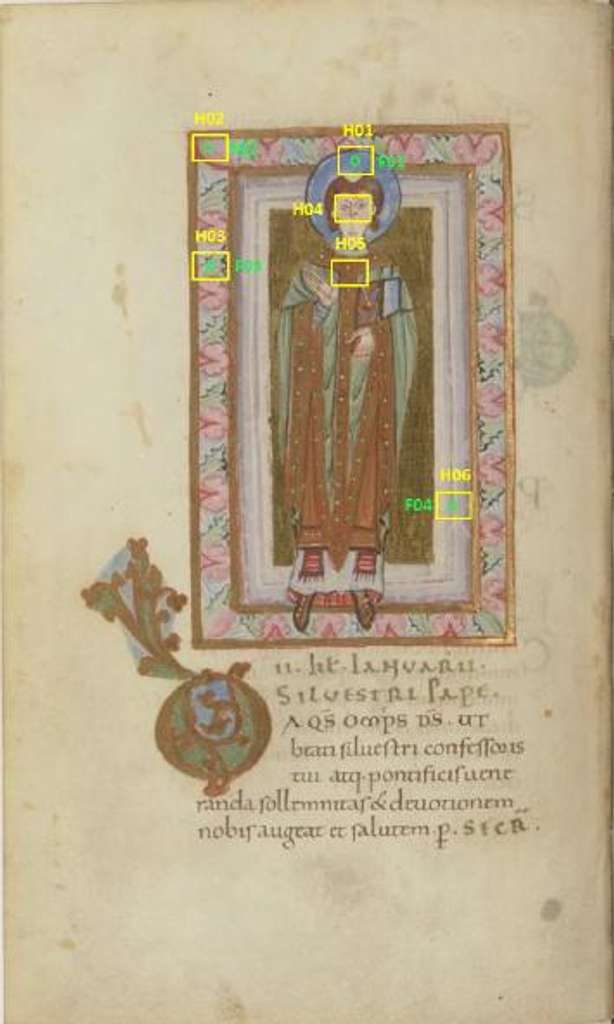 H02
H01
F01
H04
H03
H05
F03
H06
F04
II. kƚ. IANUARII.
SILVESTRI PAPE.
DA QS̄ OMP̄S D̄S. UT
beati siluestri confessoris
tui atq· pontificis uene
randa sollemnitas & deuotionem
nobis augeat et salutem p̲. SECR̄.